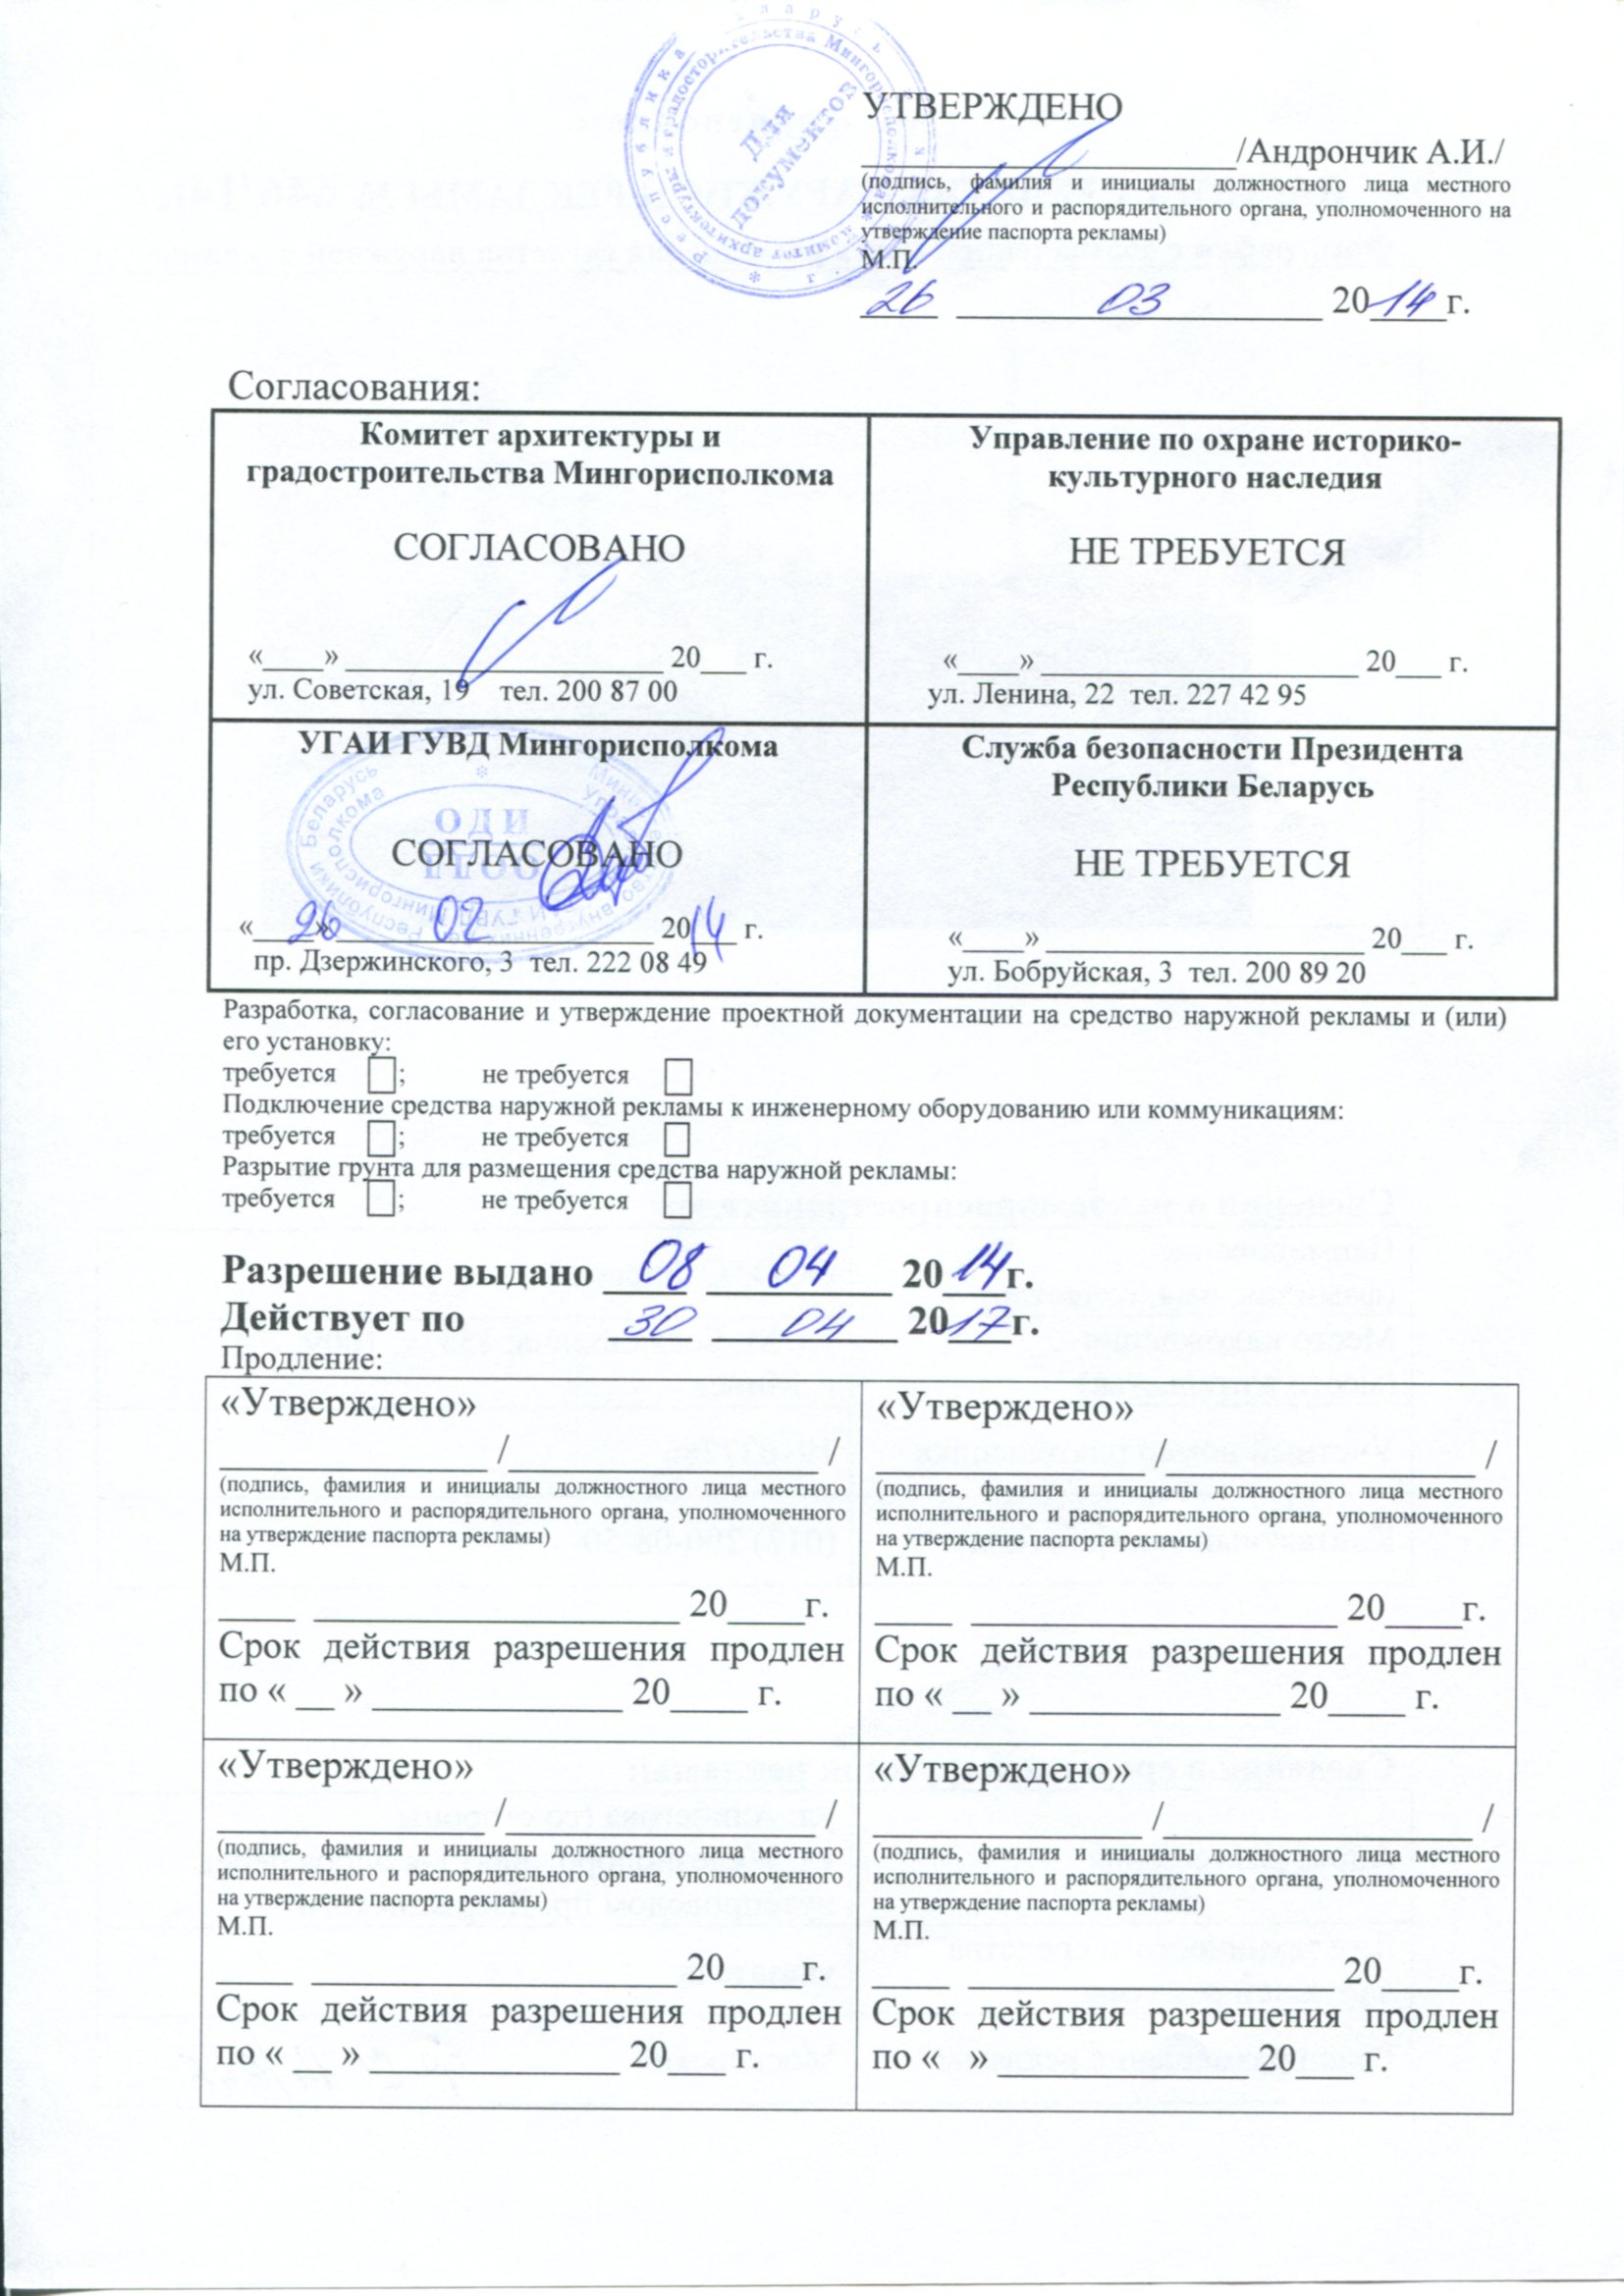 Республика Беларусь
Комитет архитектуры и градостроительства Мингорисполкома
Для
документов
УТВЕРЖДЕНО
____________________/Андрончик А.И./
(подпись, фамилия и инициалы должностного лица местного
исполнительного и распорядительного органа, уполномоченного на
утверждение паспорта рекламы)
М.П.
26 03 2014г.
Согласования:
Комитет архитектуры и
градостроительства Мингорисполкома
СОГЛАСОВАНО
«____» ____________________ 20___ г.
ул. Советская, 19 тел. 200 87 00
Управление по охране историко-
культурного наследия
НЕ ТРЕБУЕТСЯ
«____» ____________________ 20___ г.
ул. Ленина, 22 тел. 227 42 95
УГАИ ГУВД Мингорисполкома
ОДИ
СОГЛАСОВАНО
«26» 02 2014 г.
пр. Дзержинского, 3 тел. 222 08 49
Служба безопасности Президента
Республики Беларусь
НЕ ТРЕБУЕТСЯ
«____» ____________________ 20___ г.
ул. Бобруйская, 3 тел. 200 89 20
Разработка, согласование и утверждение проектной документации на средство наружной рекламы и (или)
его установку:
требуется ☐; не требуется ☐
Подключение средства наружной рекламы к инженерному оборудованию или коммуникациям:
требуется ☐; не требуется ☐
Разрытие грунта для размещения средства наружной рекламы:
требуется ☐; не требуется ☐
Разрешение выдано 08 04 2014г.
Действует по 30 04 2017г.
Продление:
«Утверждено»
______________ /________________ /
(подпись, фамилия и инициалы должностного лица местного
исполнительного и распорядительного органа, уполномоченного
на утверждение паспорта рекламы)
М.П.
____ ___________________ 20____г.
Срок действия разрешения продлен
по « __ » _____________ 20____ г.
«Утверждено»
______________ /________________ /
(подпись, фамилия и инициалы должностного лица местного
исполнительного и распорядительного органа, уполномоченного
на утверждение паспорта рекламы)
М.П.
____ ___________________ 20____г.
Срок действия разрешения продлен
по « __ » _____________ 20____ г.
«Утверждено»
______________ /________________ /
(подпись, фамилия и инициалы должностного лица местного
исполнительного и распорядительного органа, уполномоченного
на утверждение паспорта рекламы)
М.П.
____ ___________________ 20____г.
Срок действия разрешения продлен
по « __ » _____________ 20___ г.
«Утверждено»
______________ /________________ /
(подпись, фамилия и инициалы должностного лица местного
исполнительного и распорядительного органа, уполномоченного
на утверждение паспорта рекламы)
М.П.
____ ___________________ 20____г.
Срок действия разрешения продлен
по « » _____________ 20___ г.